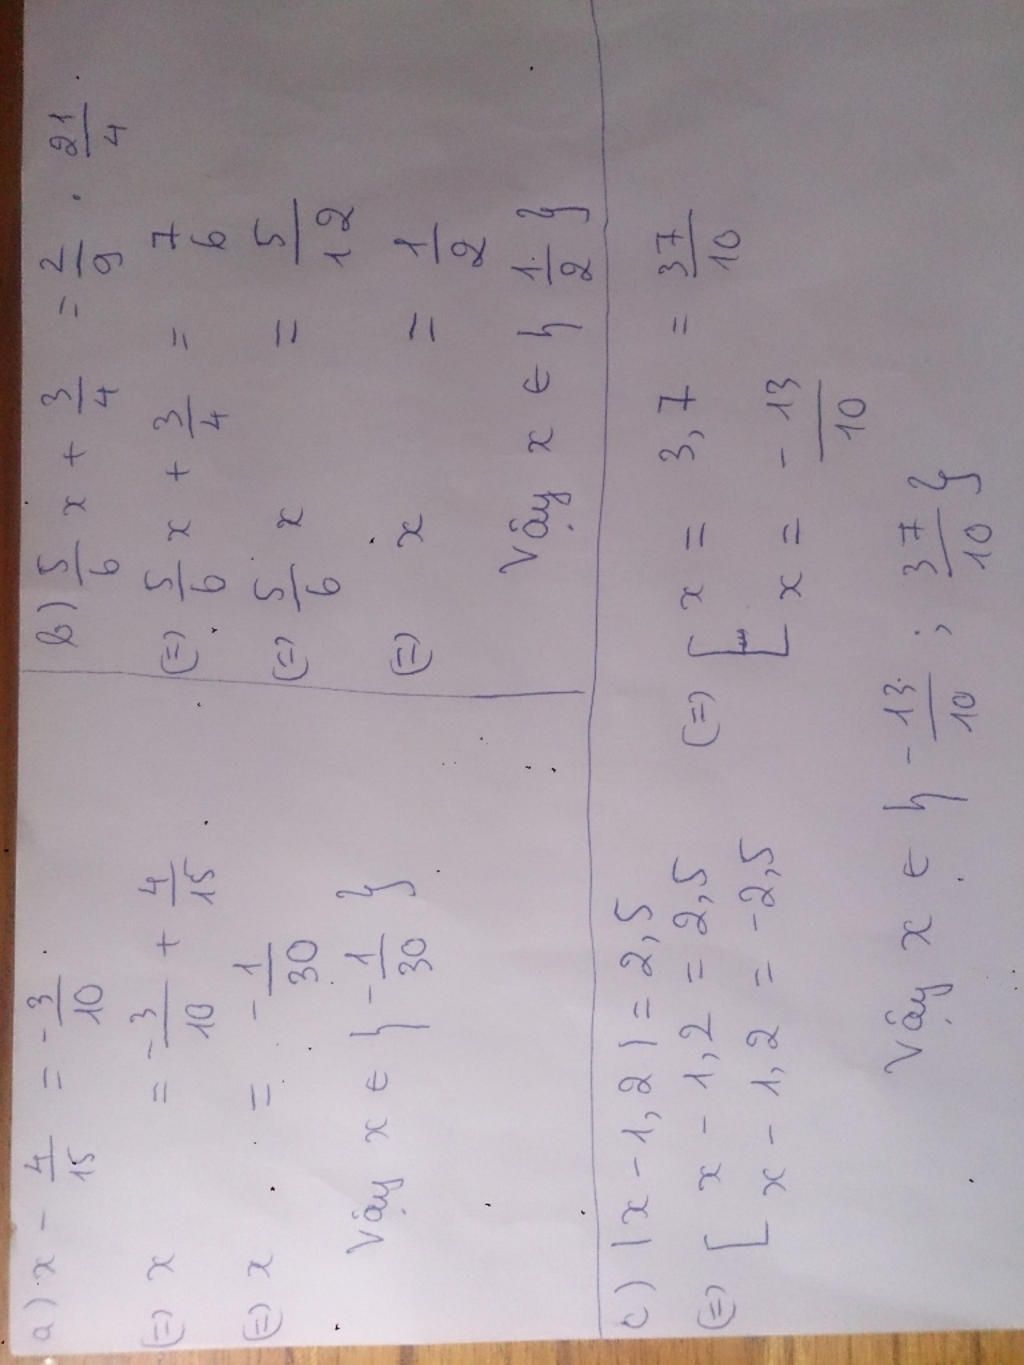 a) x - 4/15 = -3/10
(=) x = -3/10 + 4/15
(=) x = -1/30
Vậy x ∈ { -1/30 }
b) 5/6 x + 3/4 = 2/9 . 21/4
(=) 5/6 x + 3/4 = 7/6
(=) 5/6 x = 5/12
(=) x = 1/2
Vậy x ∈ { 1/2 }
c) |x - 1,2| = 2,5
(=) [ x - 1,2 = 2,5 (=) [ x = 3,7 = 37/10
x - 1,2 = -2,5 x = -13/10
Vậy x ∈ { -13/10 ; 37/10 }